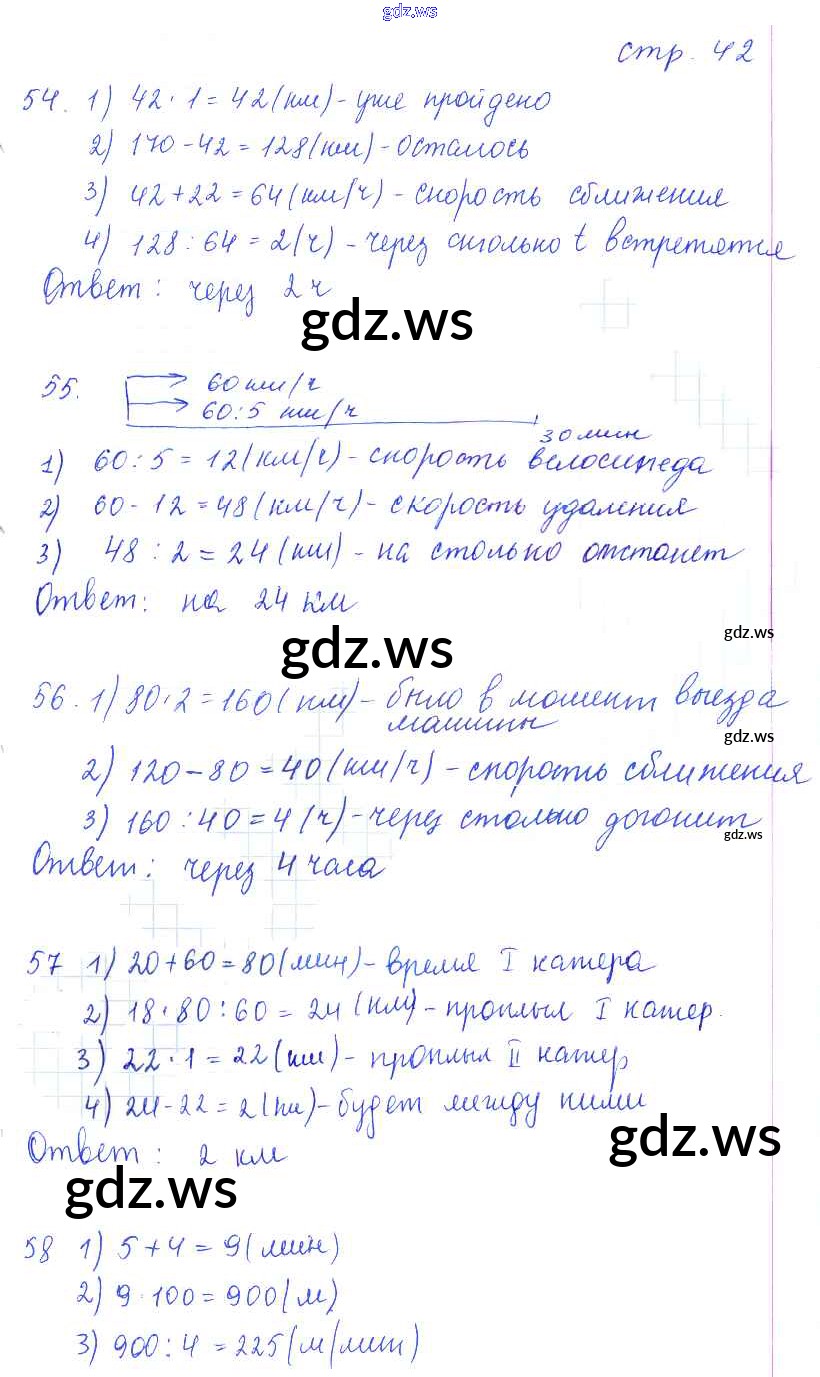 gdz.ws
стр. 42
54. 1) 42 · 1 = 42 (км) - уже пройдено
2) 170 - 42 = 128 (км) - осталось
3) 42 + 22 = 64 (км/ч) - скорость сближения
4) 128 : 64 = 2 (ч) - через сколько t встретятся
Ответ: через 2 ч
gdz.ws
55. 60 км/ч
60:5 км/ч
30 мин
1) 60 : 5 = 12 (км/ч) - скорость велосипеда
2) 60 - 12 = 48 (км/ч) - скорость удаления
3) 48 : 2 = 24 (км) - на столько отстанет
Ответ: на 24 км
gdz.ws
gdz.ws
56. 1) 80 · 2 = 160 (км) - было в момент выезда
машины
gdz.ws
2) 120 - 80 = 40 (км/ч) - скорость сближения
3) 160 : 40 = 4 (ч) - через столько догонит
gdz.ws
Ответ: через 4 часа
57 1) 20 + 60 = 80 (мин) - время I катера
2) 18 · 80 : 60 = 24 (км) - проплыл I катер.
3) 22 · 1 = 22 (км) - проплыл II катер
4) 24 - 22 = 2 (км) - будет между ними
gdz.ws
Ответ: 2 км
gdz.ws
58 1) 5 + 4 = 9 (мин)
2) 9 · 100 = 900 (м)
3) 900 : 4 = 225 (м/мин)